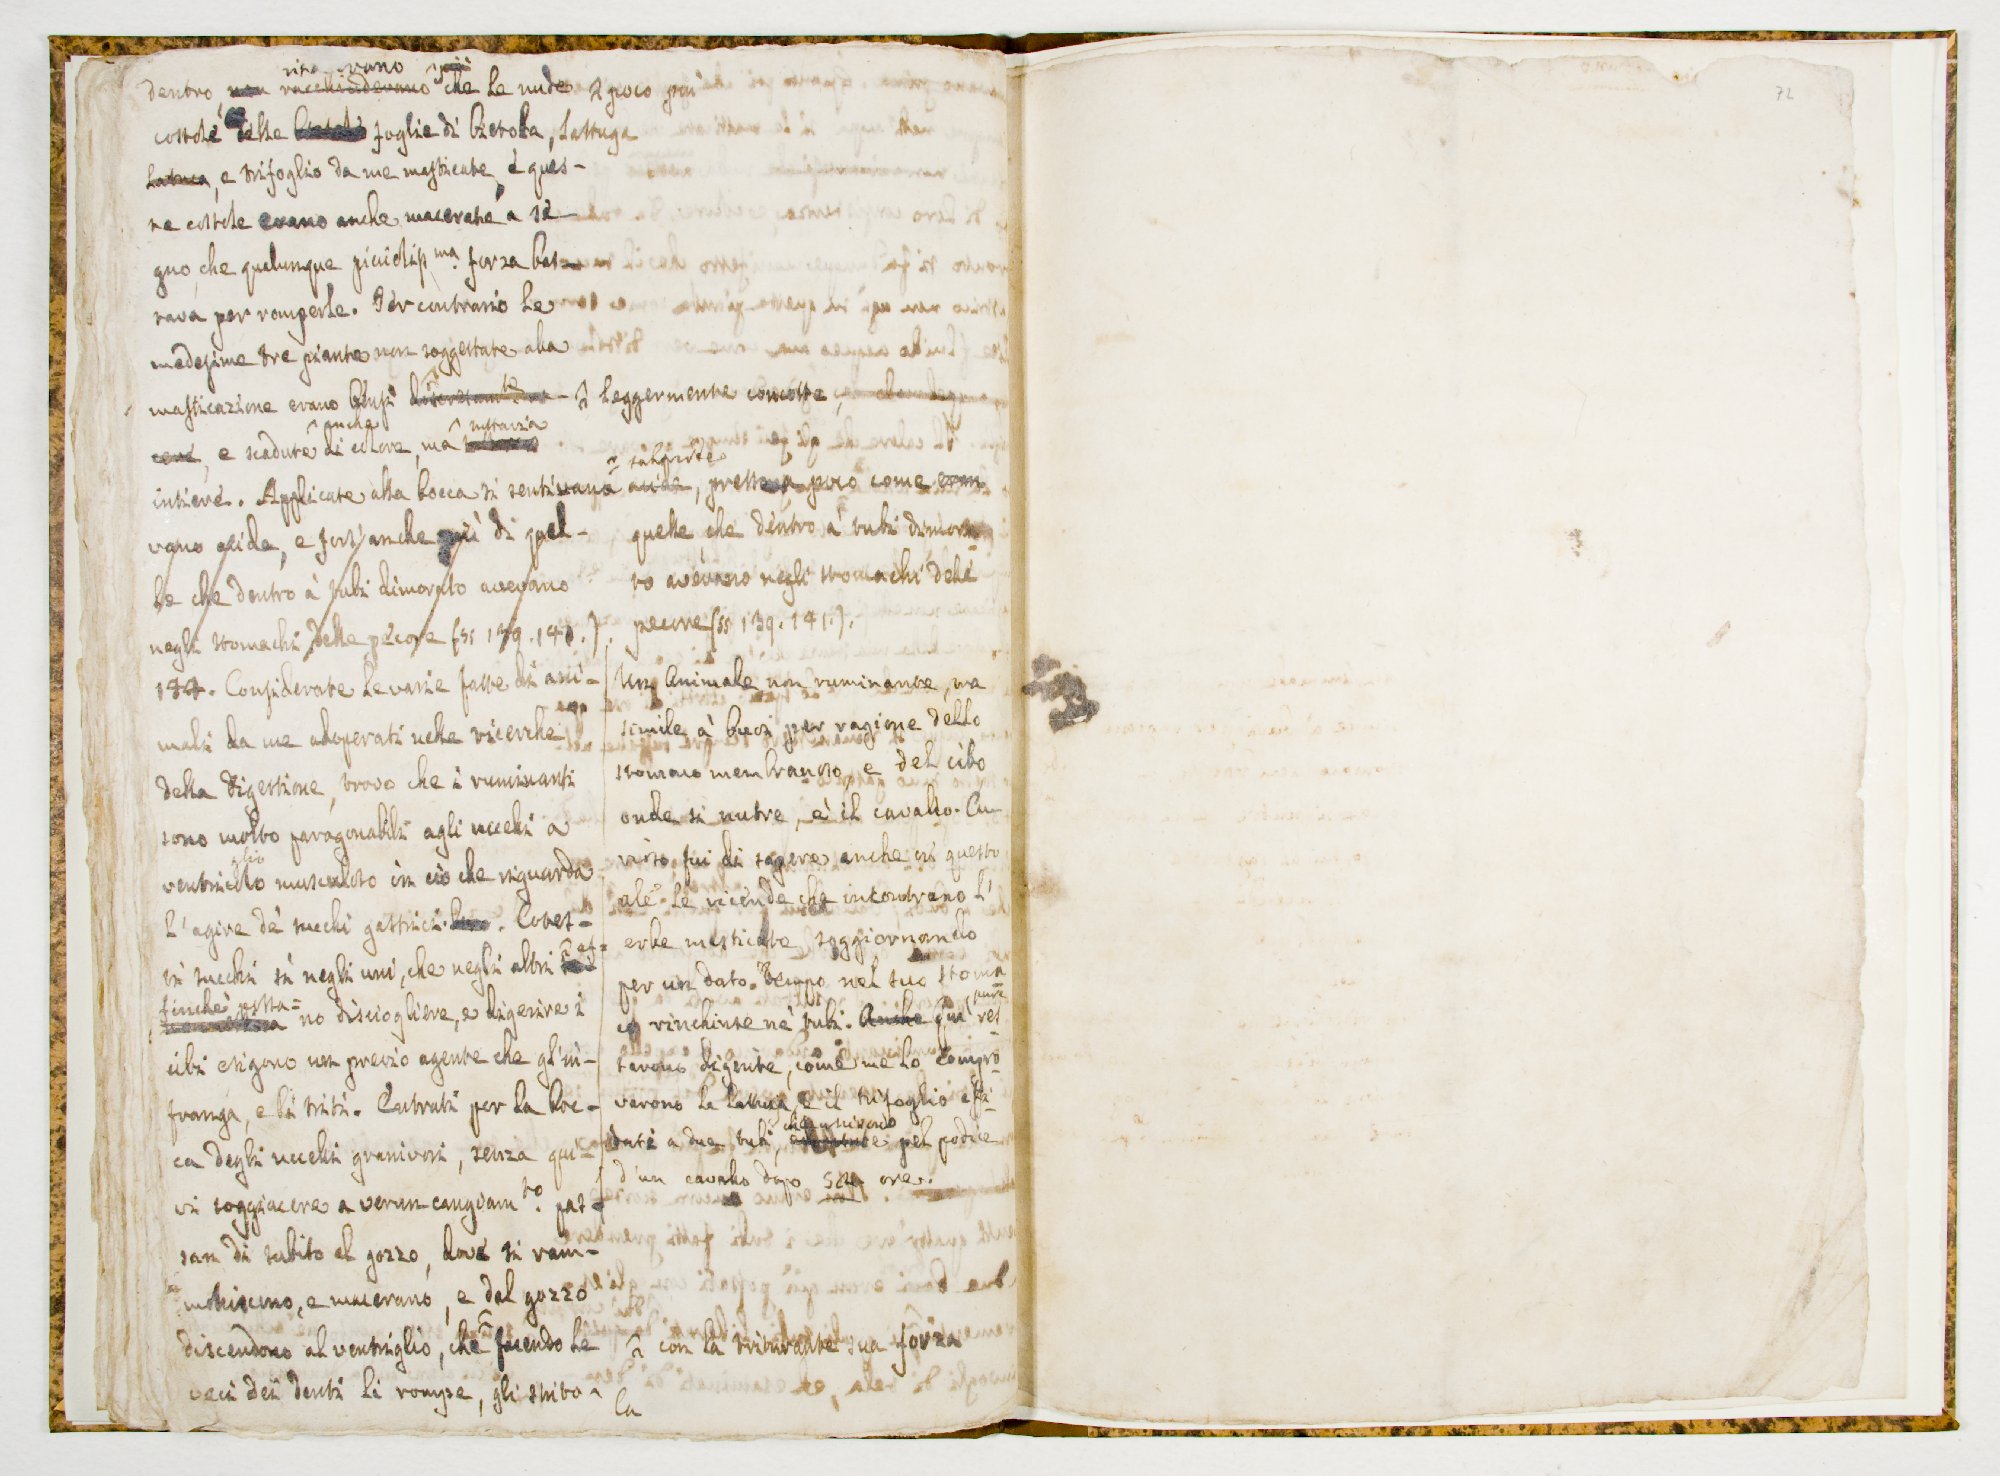 ritrovavano
dentro, non racchiudevano che le nude
costole delle foglie di bietola, lattuga
Latuca, e trifoglio da me masticate, e ques-
te costole erano anche macerate a se-
gno, che qualunque picciolissma. forza bas-
tava per romperle. Per contrario le
medesime tre piante non soggettate alla
masticazione erano bensì
e scadute anche di colore, ma tuttavia
intiere. Applicate alla bocca si sentivano
vano acide, e forsi anche più di quel-
le che dentro à tubi dimorato avevano
negli stomachi delle pecore (§§ 139. 141.).
144. Considerate le varie fatte di ani-
mali da me adoperati nelle ricerche
della digestione, trovo che i ruminanti
sono molto paragonabili agli uccelli a
ventriglio musculoso in ciò che riguarda
l'agire de' succhi gastrici. Cotes-
ti succhi sì negli uni, che negli altri
finchè possa=
no disciogliere, e digerire i
cibi esigono un previo agente che gl'in-
franga, e li triti. Entrati per la boc-
ca degli uccelli granivori, senza qui-
vi soggiacere a verun cangiamto. pas-
san di subito al gozzo, dove si ram-
molliscono, e macerano, e dal gozzo
discendono al ventriglio, che facendo le
veci dei denti li rompe, gli strito-
a poco più
leggermente concotte,
subacide
acide, presso a poco come eran
quelle che dentro a' tubi dimora
to avevano negli stomachi delle
pecore (§§ 139. 141.).
Un Animale non ruminante, ma
simile à buoi per ragione dello
stomaco membranoso, e del cibo
onde si nutre, è il cavallo. Cu-
rioso fui di sapere anche in questo
ale le vicende che incontrano l'
erbe masticate soggiornando
per un dato tempo nel suo stoma
co rinchiuse ne' tubi. Anche qui pure res
tarono digerite, come me lo compro
varono la lattuca, e il trifoglio affi-
dati a due tubi, che uscirono pel podice
d'un cavallo dopo ore.
con la triturante sua forza
la
72